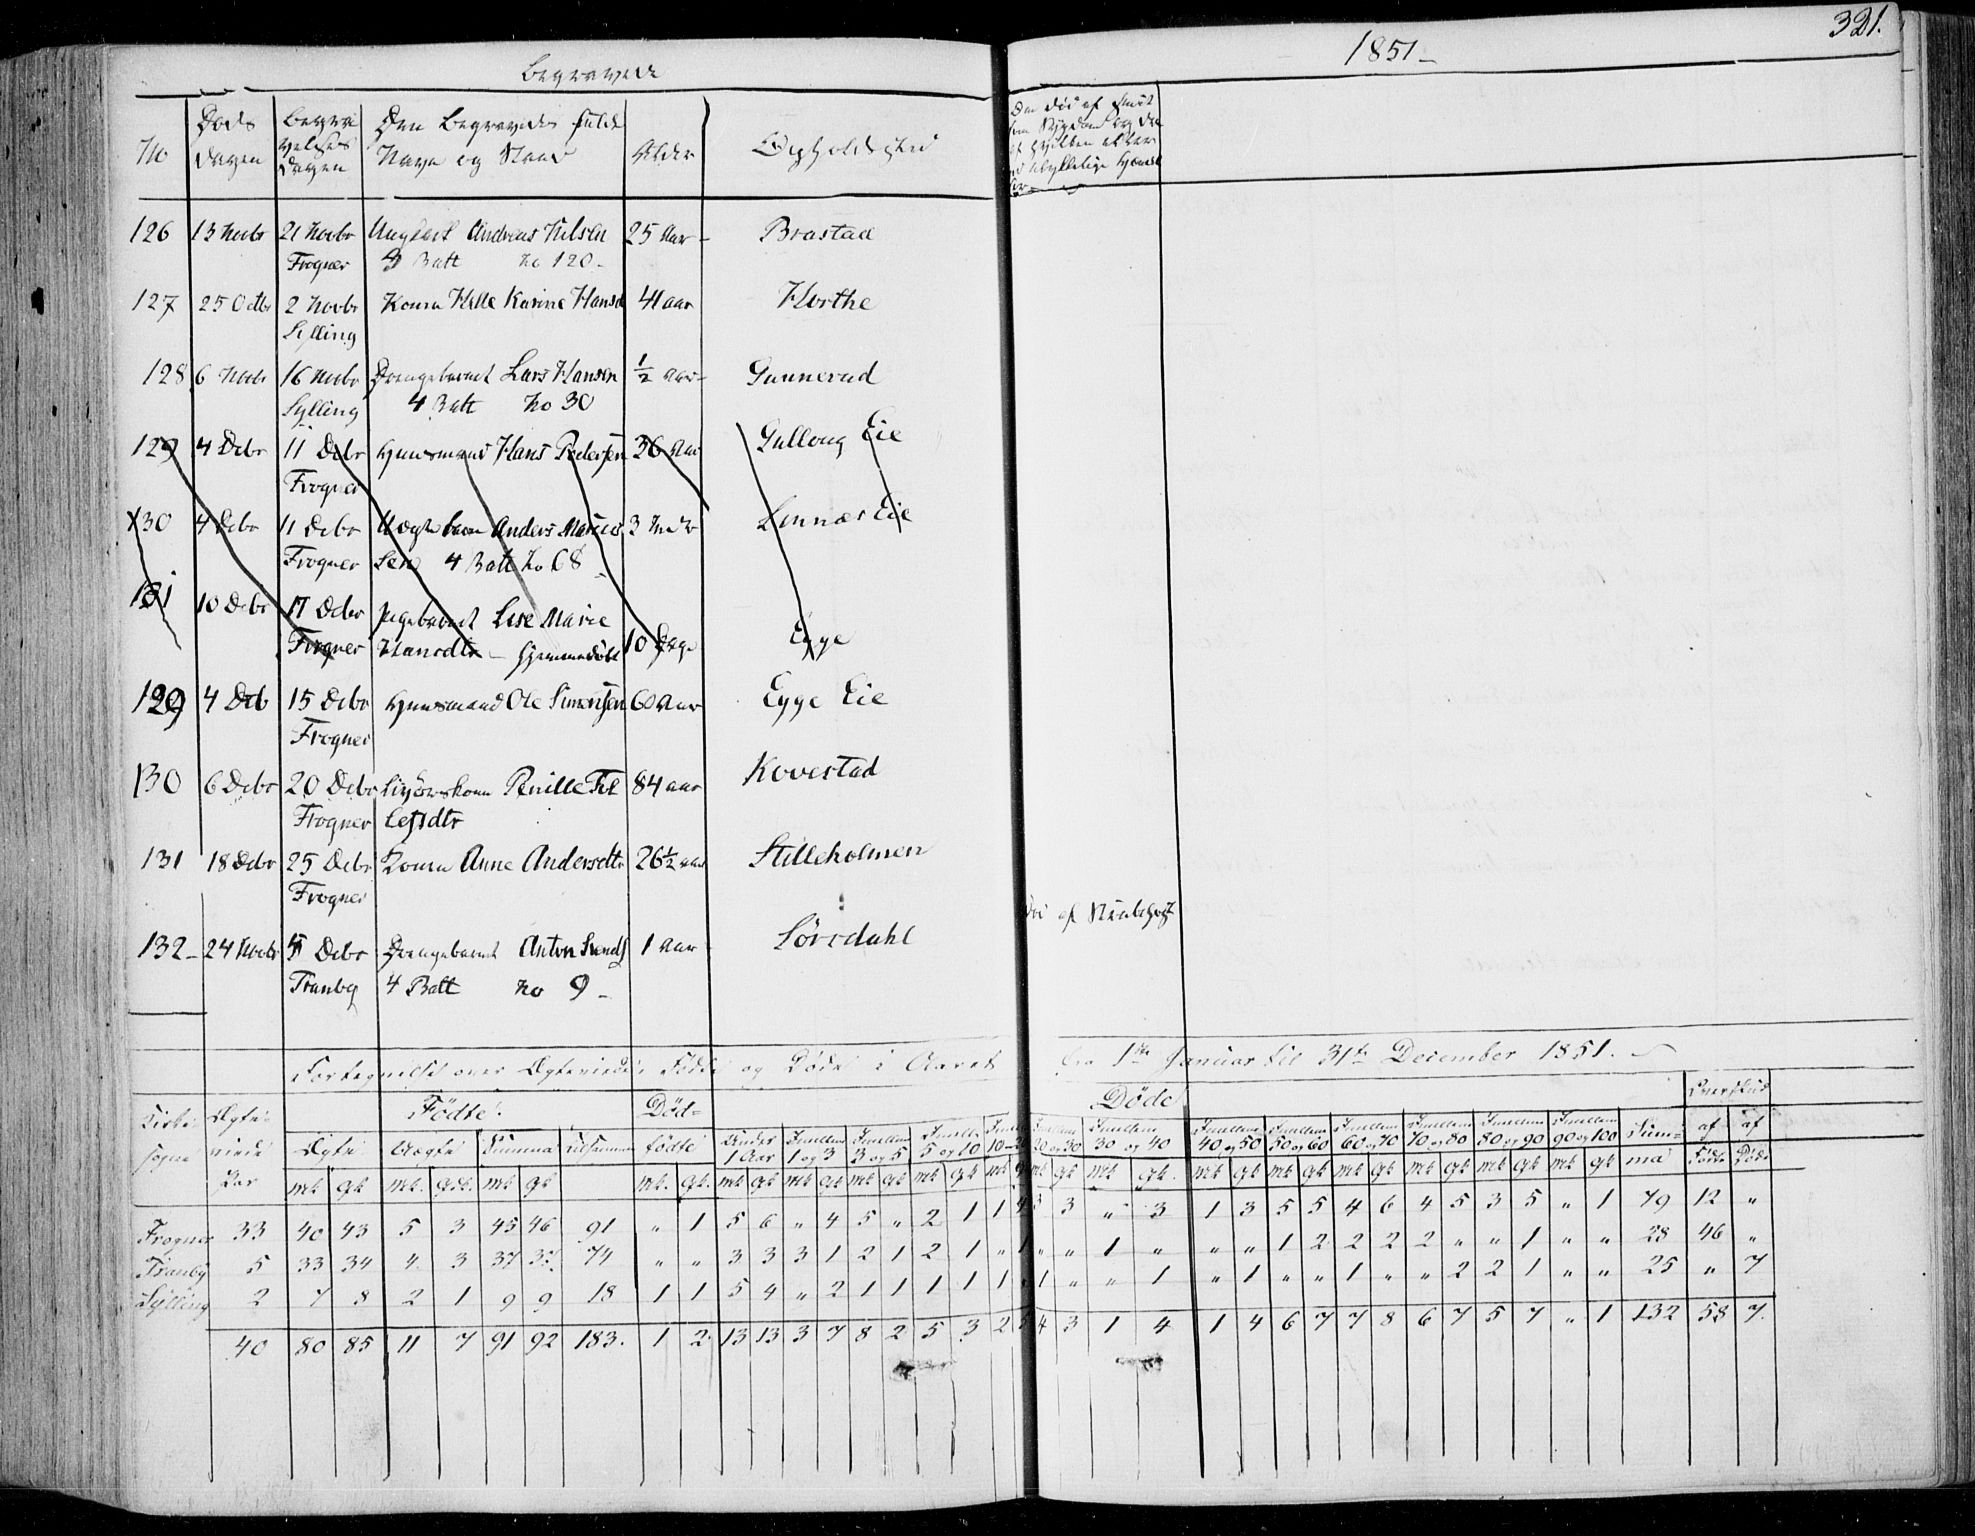 321.
Begravede
1851-
No
Døds
Dagen
Begra
velses
Dagen
Den Begravedes fulde
Navn og Stand
Alder
Opholdsted
126 13 Novbr 21 Novbr Ungkarl Andreas Nilsen 25 Aar - Brastad
Frogner Batt No 120 -
127 25 Octbr 2 Novbr Kone Helle Karine Hansd 41 aar Horthe
Sylling
128 6 Novbr 16 Novbr Drengebarnet Lars Hansen ½ aar - Gunnerud
Sylling 4 Batt No 30
129 4 Debr 11 Debr Huusmand Hans Pedersen 36 Aar Gullaug Eie
Frogner
130 4 Debr 11 Debr Uægte barn Anders Marius 3 Linnæs Eie
Frogner 4 Batt No 68
131 10 Debr 17 Debr Pigebarnet Lise Marie
Frogner Hansdtr - hjemmedøbt 10 Dage Egge
129 4 Deb 15 Debr Huusmand Ole Simensen 60 Aar Egge Eie
Frogner
130 6 Debr 20 Debr Pernille Tol 84 aar Kovestad
Frogner lefsdtr
131 18 Debr 25 Debr Kone Anne Andersdtr 26½ aar Stilleholmen
Frogner
132 - 24 Novbr 5 Debr Drengebarnet Anton 1 Aar Sørsdahl
Tranby 4 Batt No 9 -
Fortegnelse over Ægteviede Fødte og Døde i Aaret fra 1ste Januar til 31te December 1851.
Fødte Død= Døde Overskud
Kirke Ægte
sogne viede Ægte Uægte Summa Tilsammen fødte Under Imellem Imellem Imellem
Par 1 Aar 1 og 3 3 og 5 5 og 10 20 og 30 30 og 40 40 og 50 50 og 60 60 og 70 70 og 80 80 og 90 90 og 100 Sum= af af
ma Fødte Døde
Frogner 33 40 43 5 3 45 46 91 " 1 5 6 " 4 5 " 2 1 1 4 3 3 " 3 1 3 5 5 4 6 4 5 3 5 " 1 79 12 "
Tranby 5 33 34 4 3 37 37 74 " " 3 3 3 1 2 1 2 1 " 1 " " 1 " " " 1 2 2 2 2 " " 1 " " 28 46 "
Sylling 2 7 8 2 1 9 9 18 1 1 5 4 " 2 1 1 1 1 1 " 1 " " 1 " 1 " " 1 " " 2 2 1 " " 25 " 7
40 80 85 11 7 91 92 183. 1 2 13 13 3 7 8 2 5 3 2 5 4 3 1 4 1 4 6 7 7 8 6 7 5 7 " 1 132 58 7.